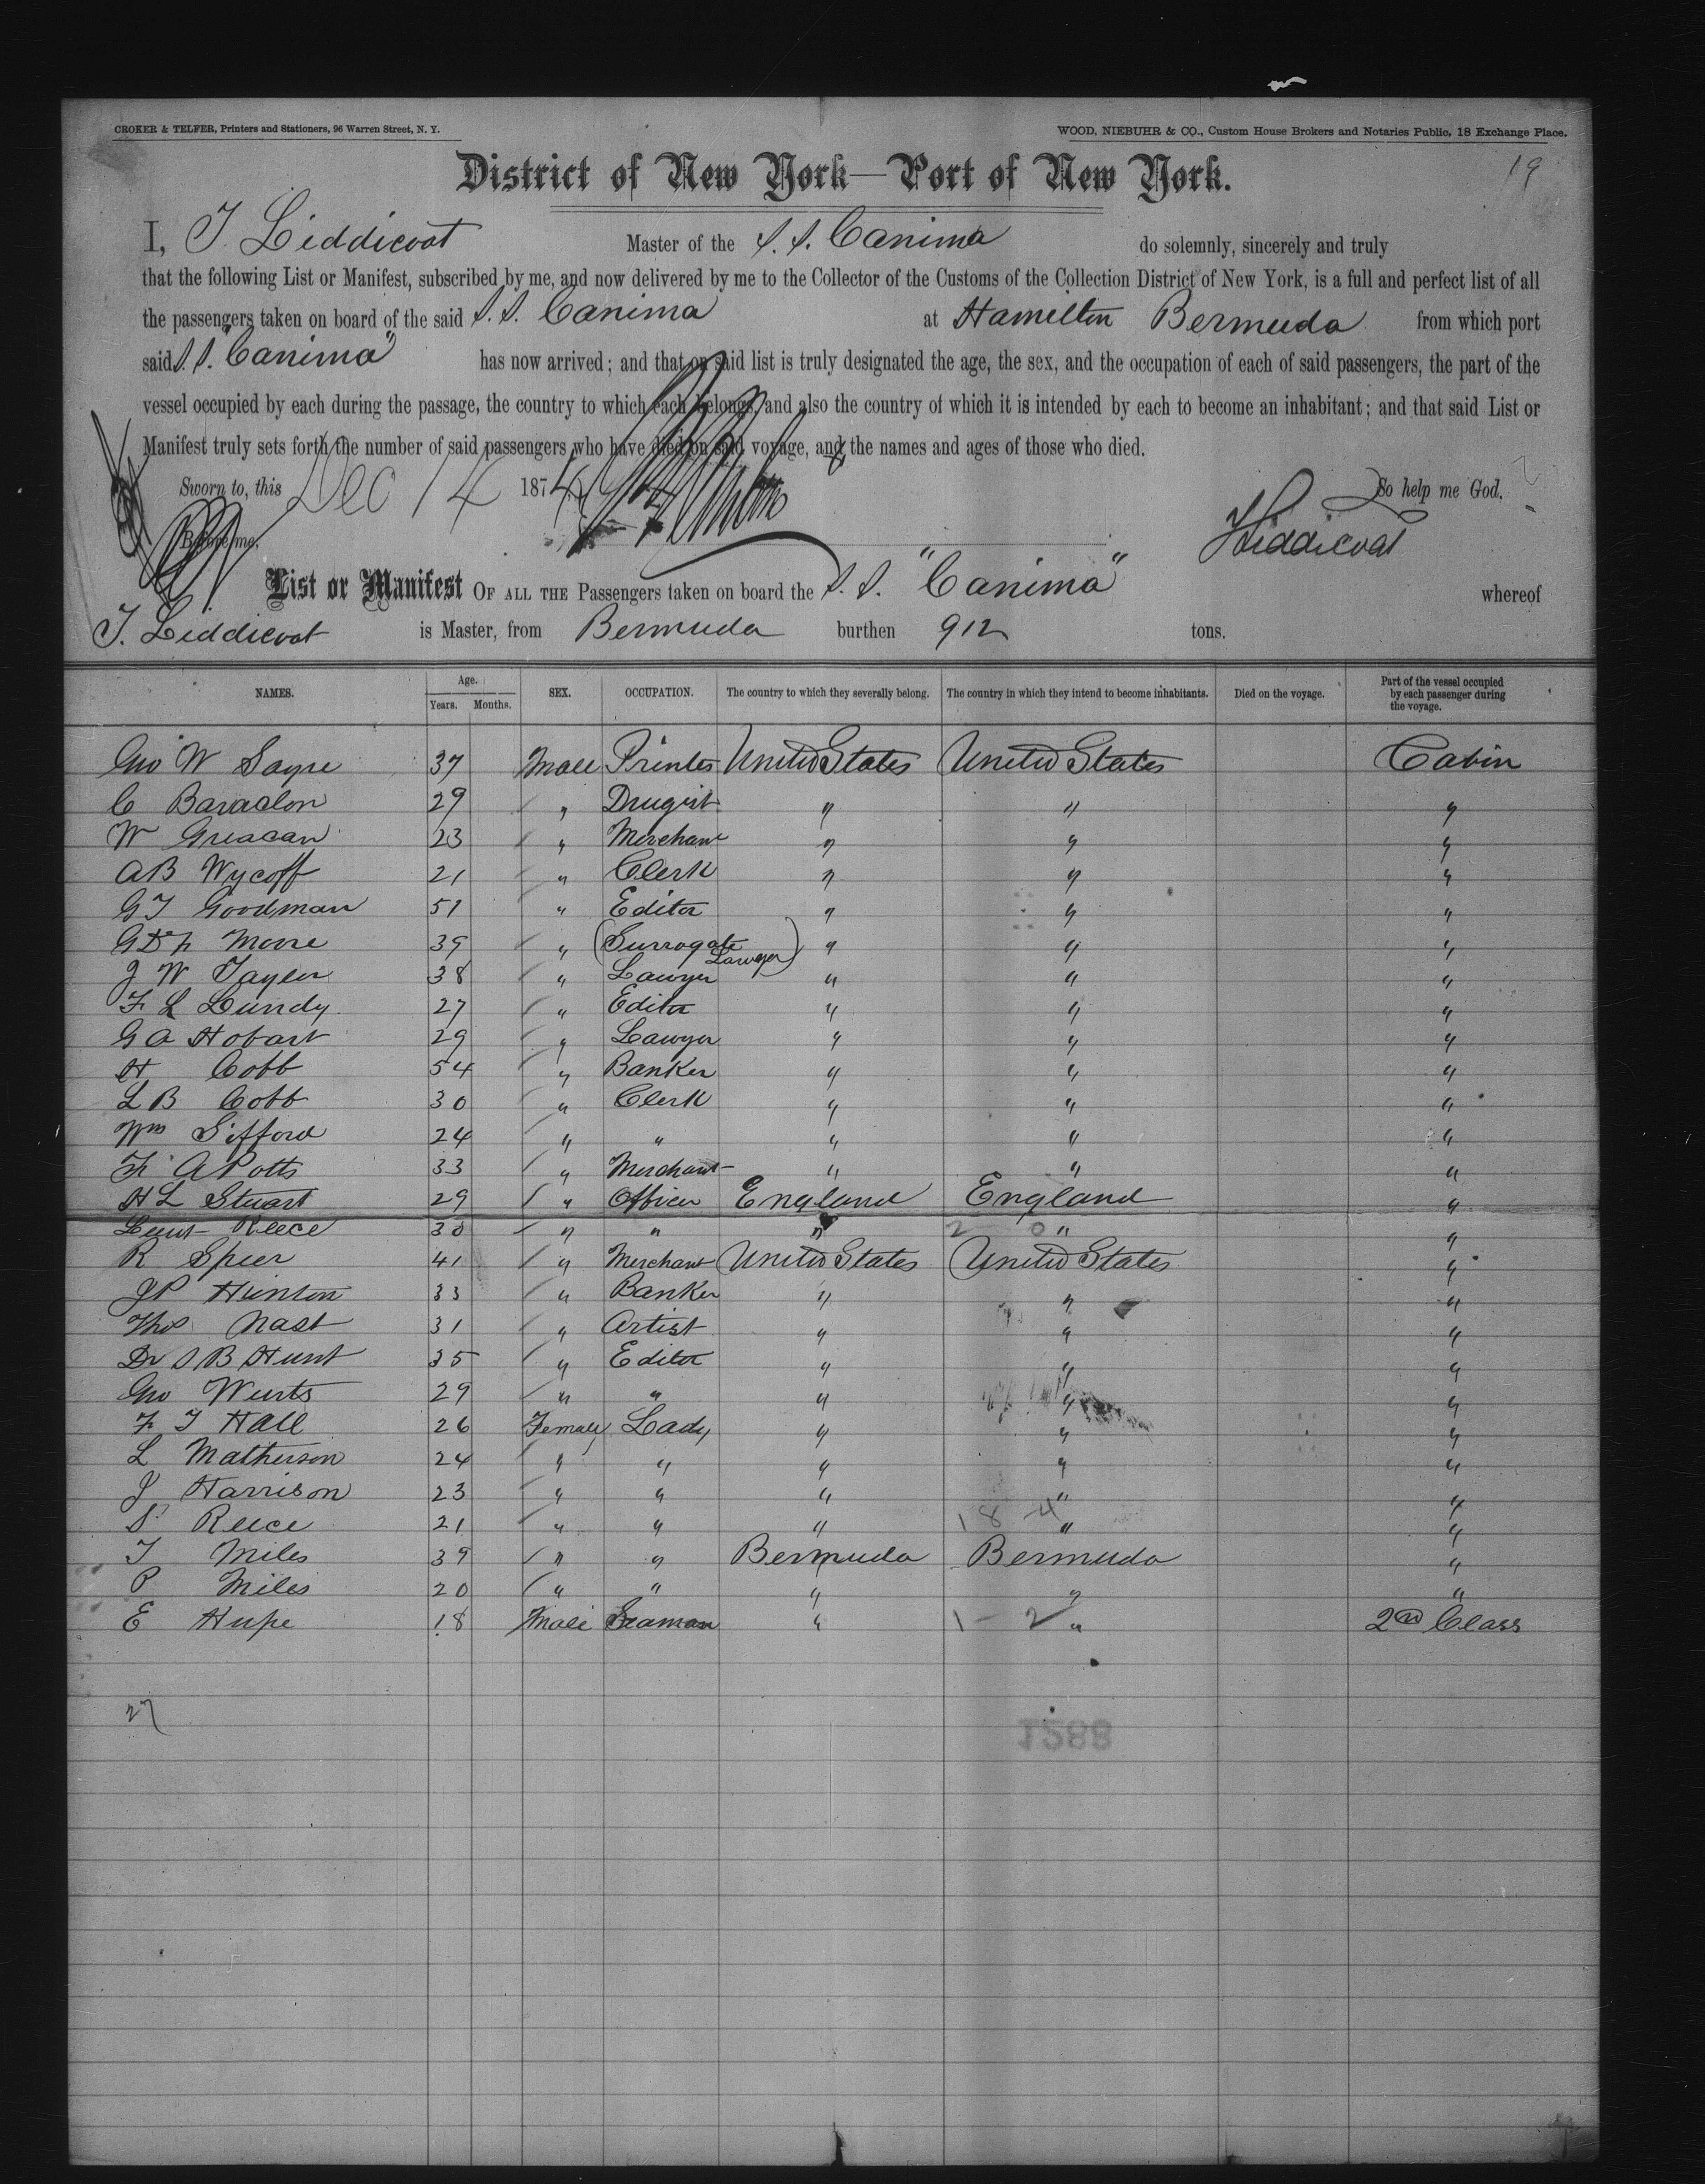 CROKER & TELFER, Printers and Stationers, 96 Warren Street, N. Y.
WOOD, NIEBUHR & CO., Custom House Brokers and Notaries Public, 18 Exchange Place.
19
District of New York—Port of New York.
I, T. Liddicoat Master of the S. S. Canima do solemnly, sincerely and truly
that the following List or Manifest, subscribed by me, and now delivered by me to the Collector of the Customs of the Collection District of New York, is a full and perfect list of all
the passengers taken on board of the said S. S. Canima at Hamilton Bermuda from which port
said S. S. "Canima" has now arrived; and that on said list is truly designated the age, the sex, and the occupation of each of said passengers, the part of the
vessel occupied by each during the passage, the country to which each belongs, and also the country of which it is intended by each to become an inhabitant; and that said List or
Manifest truly sets forth the number of said passengers who have died on said voyage, and the names and ages of those who died.
Sworn to, this Dec 14 1874 So help me God,
Before me, TLiddicoat
List or Manifest OF ALL THE Passengers taken on board the S. S. "Canima" whereof
T. Liddicoat is Master, from Bermuda burthen 912 tons.
NAMES. Age. Years. Months. SEX. OCCUPATION. The country to which they severally belong. The country in which they intend to become inhabitants. Died on the voyage. Part of the vessel occupied by each passenger during the voyage.
Geo W Sayre 37 Male Printer United States United States Cabin
C Baraclon 29 " Drugist " " "
W Greacan 23 " Merchant " " "
A B Wycoff 21 " Clerk " " "
G T Goodman 51 " Editor " " "
Moore 39 " (Surrogate Lawyer) " " "
J W Tayler 38 " Lawyer " " "
F L Lundy 27 " Editor " " "
G A Hobart 29 " Lawyer " " "
H Cobb 54 " Banker " " "
L B Cobb 30 " Clerk " " "
Wm Gifford 24 " " " " "
F A Potts 33 " Merchant " " "
H L Stuart 29 " Officer England England "
Lieut Reece 30 " " " 2 0 " "
R Speer 41 " Merchant United States United States "
J P Hunton 33 " Banker " " "
Thos Nast 31 " Artist " " "
Dr S B Hunt 35 " Editor " " "
Geo Wurts 29 " " " " "
F T Hall 26 Female Lady " " "
L Matherson 24 " " " " "
J Harrison 23 " " " " "
S Reece 21 " " " 18 4 " "
T Miles 39 " " Bermuda Bermuda "
P Miles 20 " " " " "
E Hupe 18 Male Seaman " 1 - 2 " 2nd Class
27
1288